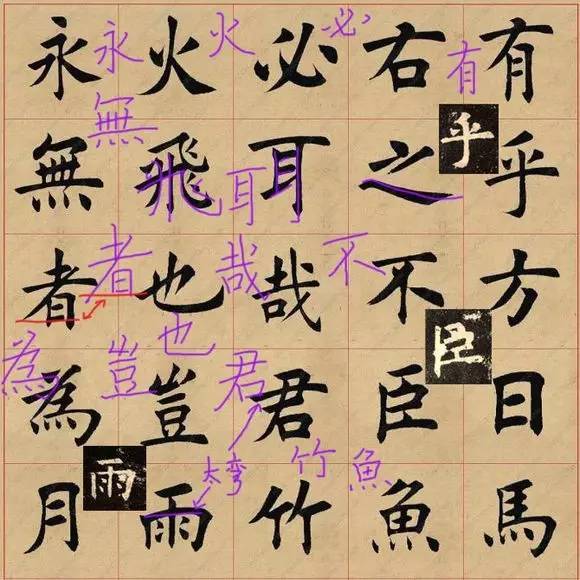 永永火火必必右有有
無無飛耳耳之乎乎
者者也哉哉不不方
也
為為豈豈君君臣臣日
月雨雨太弯竹竹魚魚馬